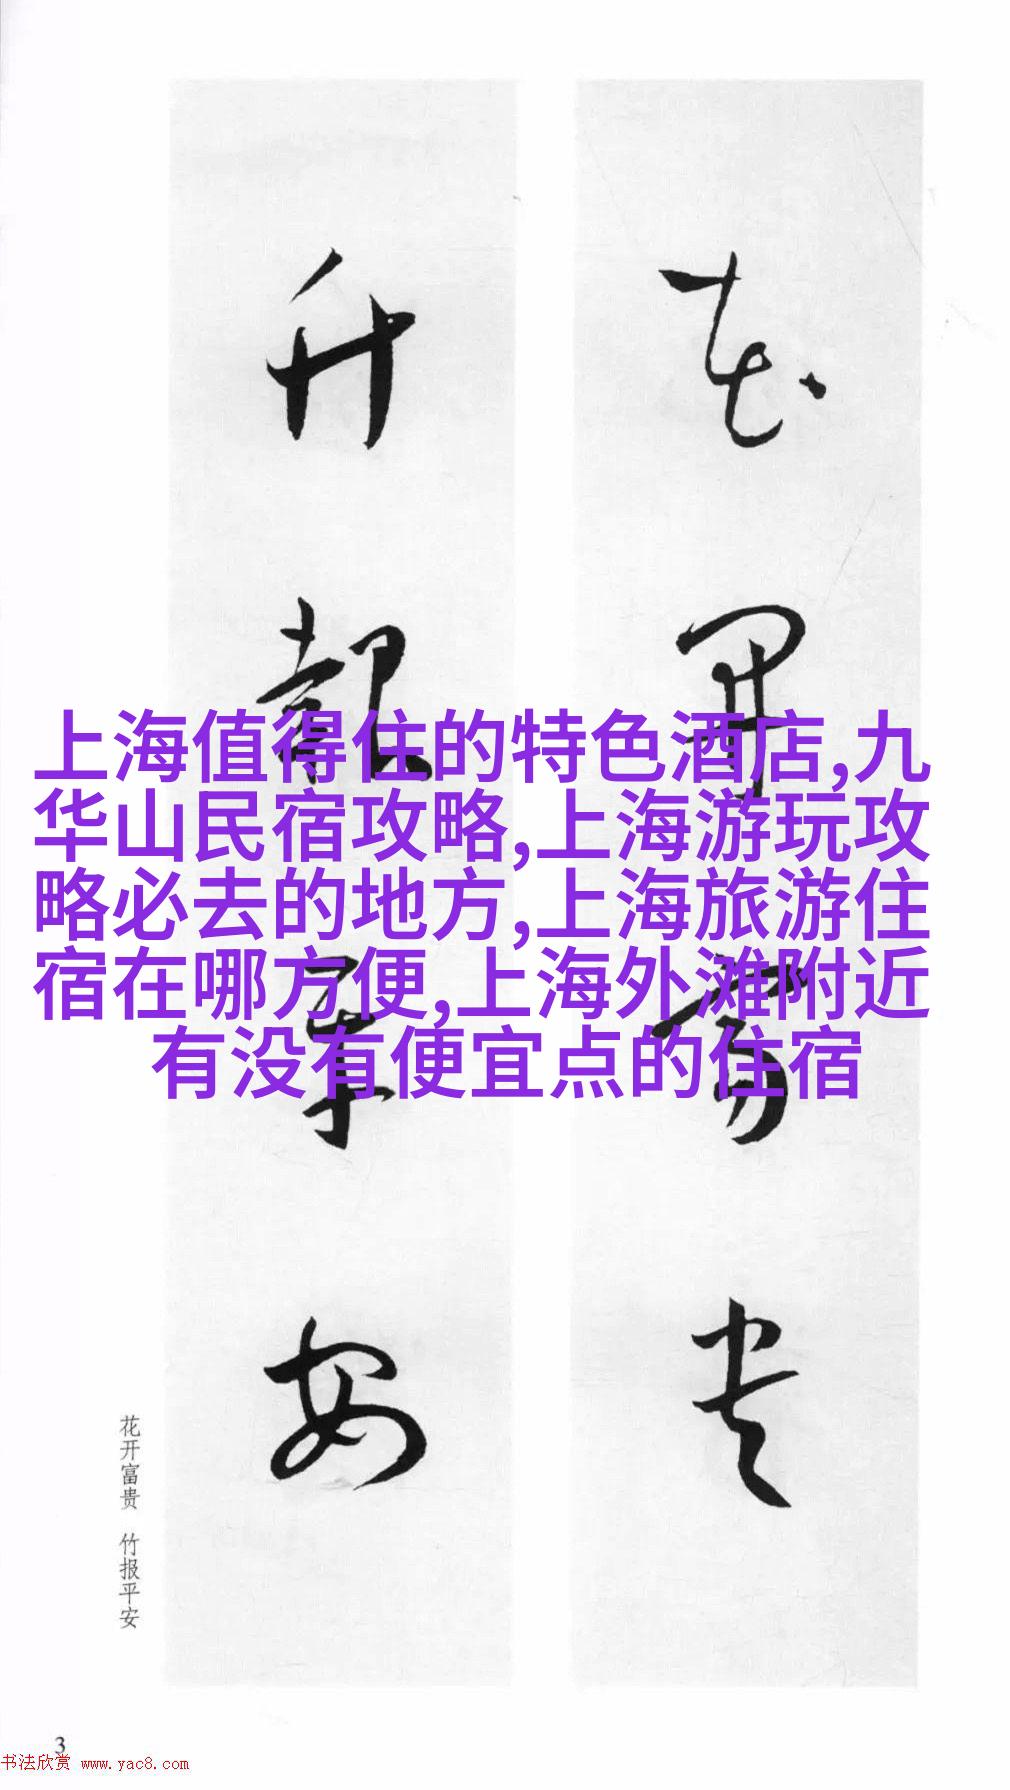 花开富贵
竹报平安
上海值得住的特色酒店,九
华山民宿攻略,上海游玩攻
略必去的地方,上海旅游住
宿在哪方便,上海外滩附近
有没有便宜点的住宿
花开富贵 竹报平安
3
书法欣赏 www.yac8.com